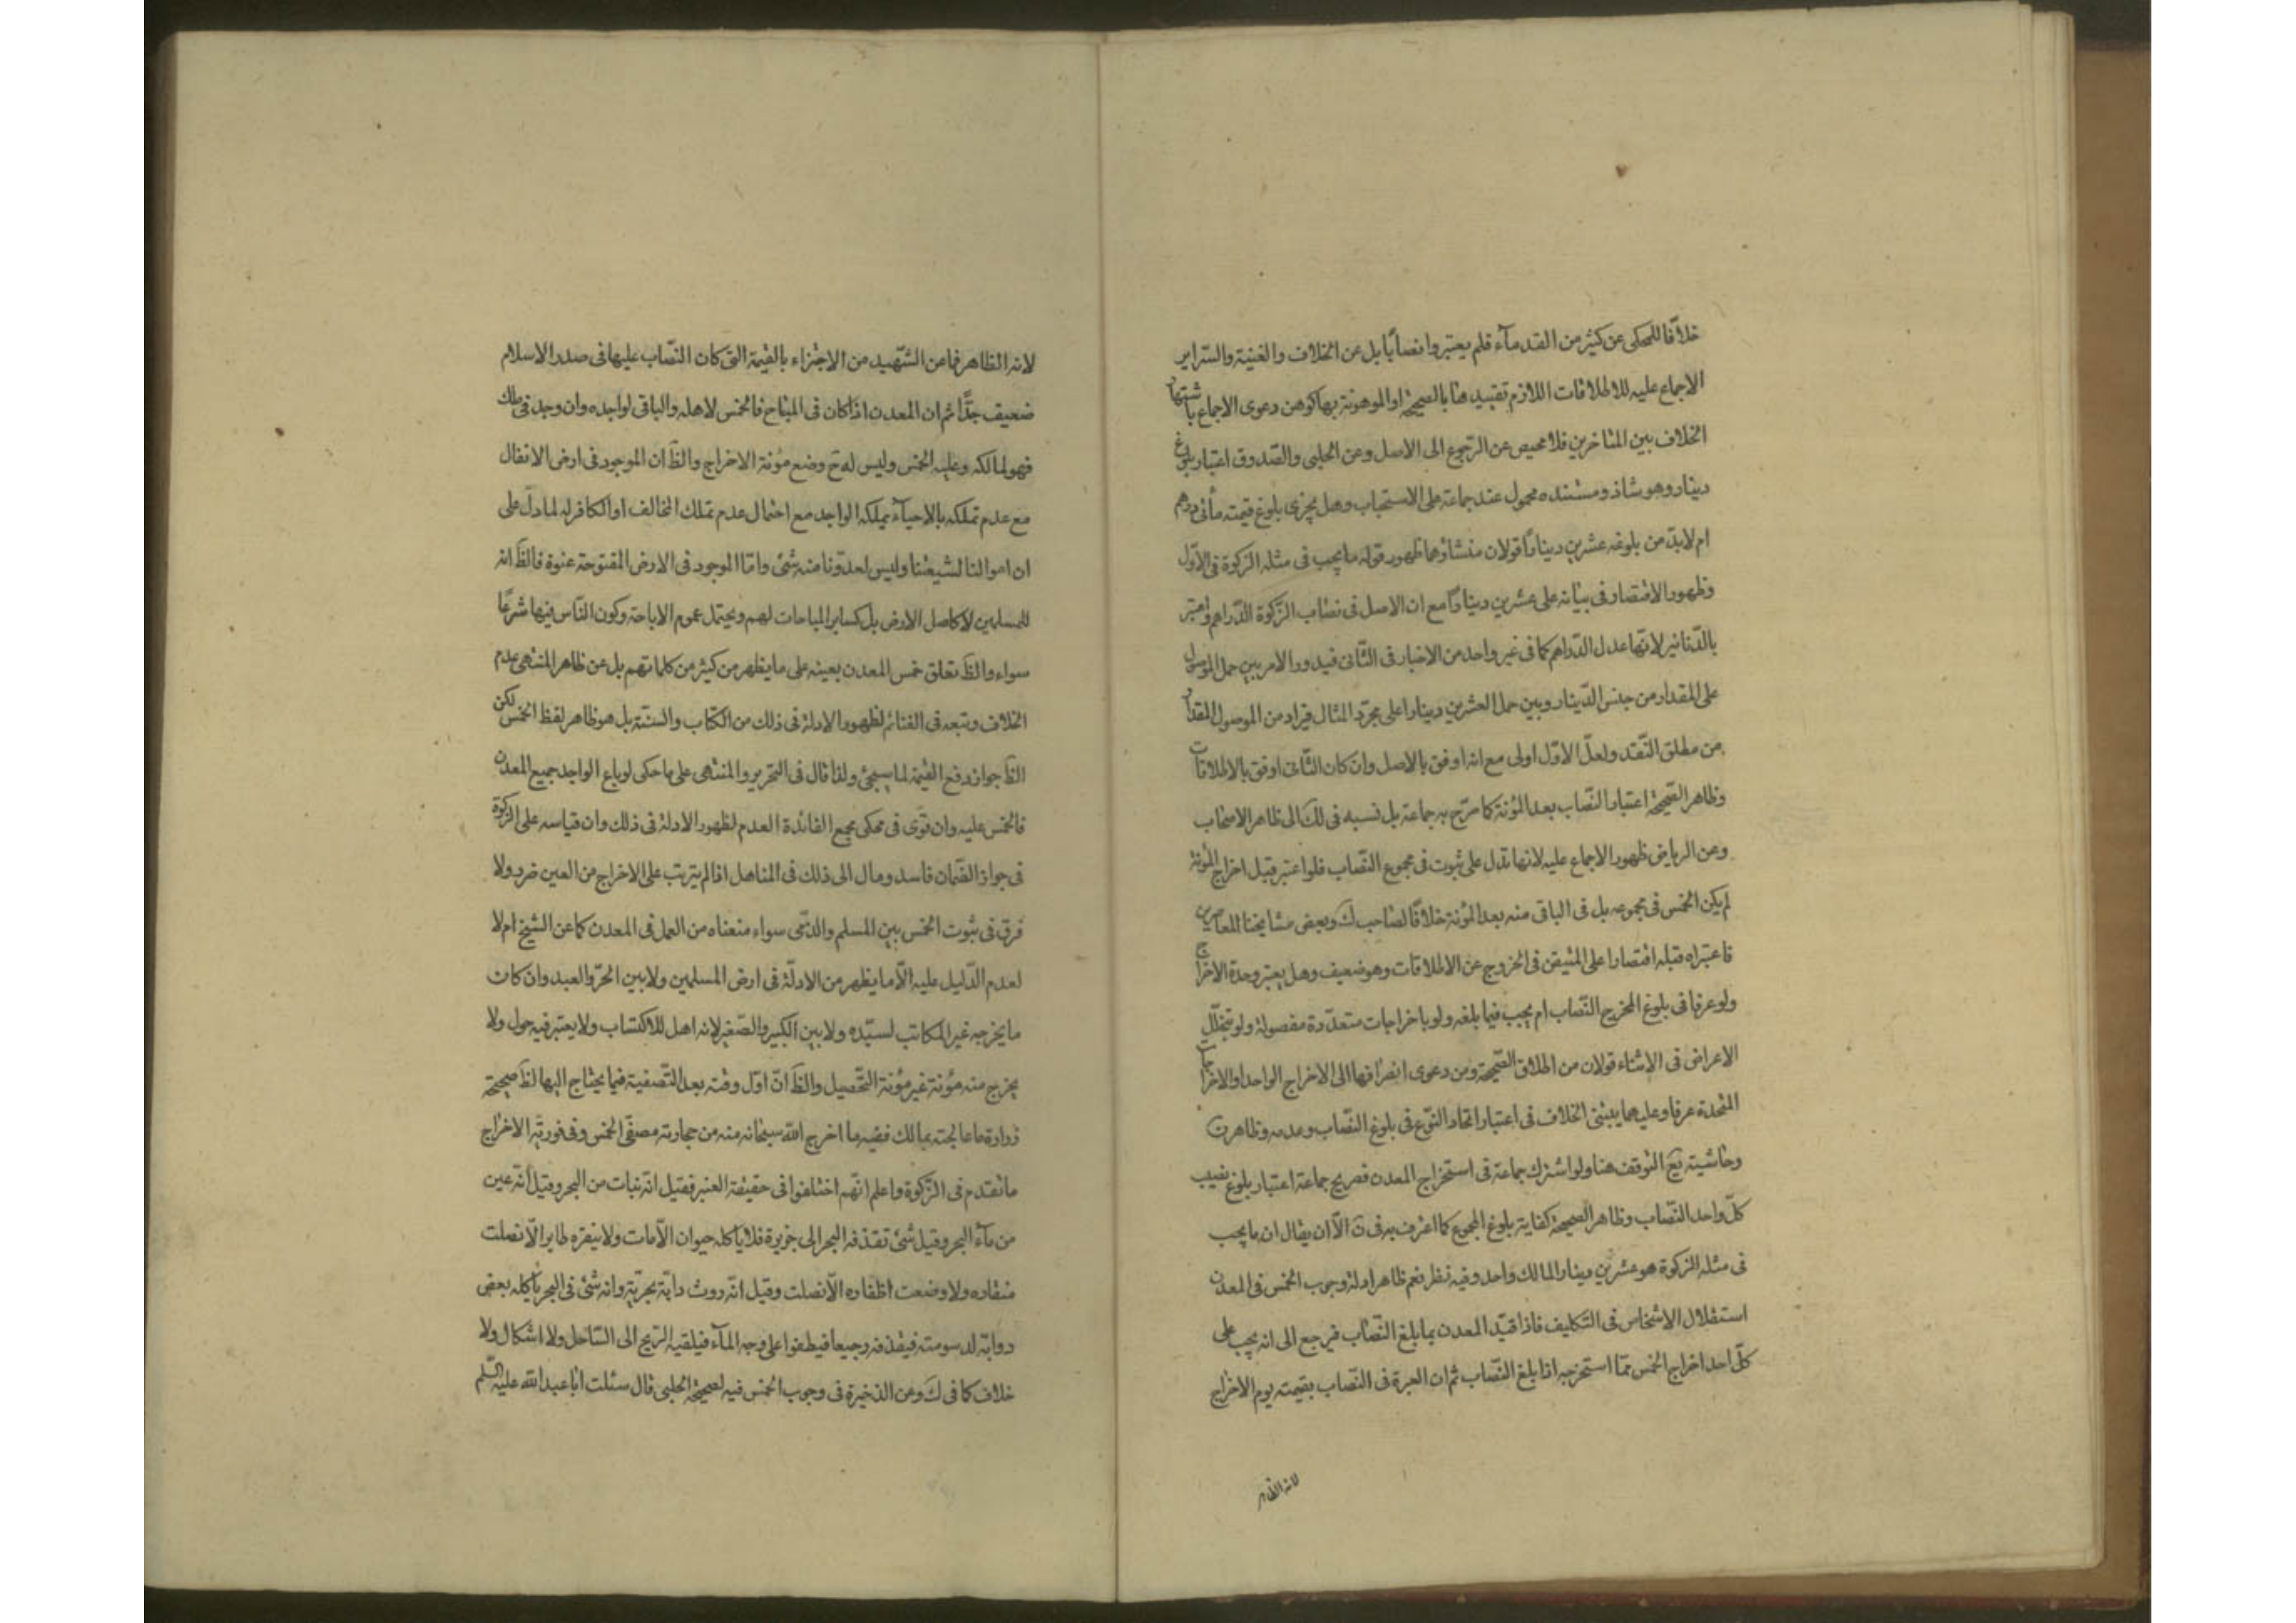 خلافا للمحكى عن كثير من القدمآء فلم يعتبروا نصابًا بل عن الخلاف والغنية والسّراير
الاجماع عليه للاطلاقات اللازم تقييدهنا بالصحيحة او الموهونة بها كوهن دعوى الاجماع باشتهار
الخلاف بين المتاخرين فلا محيص عن الرّجوع الى الاصل وعن الحلبى والصّدوق اعتبار بلوغ
دينار وهو شاذ ومستنده محمول عند جماعة على الاستحباب وهل يجزى بلوغ قيمته مأتى درهم
ام لابدّ من بلوغه عشرين دينارًا قولان منشاؤهما ظهور قوله ما يجب فى مثله الزكوة فى الاوّل
وظهور الاقتصار فى بيانه على عشرين دينارًا مع ان الاصل فى نصاب الزّكوة الدّراهم واعتبر
بالدّنانير لانّها عدل الدّراهم كما فى غير واحد من الاخبار فى الثّانى فيدور الامر بين حمل الموصول
على المقدار من جنس الدّينار وبين حمل العشرين دينارا على مجرّد المثال فيراد من الموصول المقدار
من مطلق النّقد ولعلّ الاوّل اولى مع انه اوفق بالاصل وان كان الثّانى اوفق بالاطلاقات
وظاهر الصّحيحة اعتبار النّصاب بعد المؤنة كما صرّح به جماعة بل نسبه فى لك الى ظاهر الاصحاب
وعن الرياض ظهور الاجماع عليه لانها تدل على ثبوت فى مجموع النّصاب فلو اعتبر قبل اخراج المؤنة
لم يكن الخمس فى مجموعه بل فى الباقى منه بعد المؤنة خلافًا لصاحب ك وبعض مشايخنا المعاصرين
فاعتبراه قبله اقتصارا على المتيقن فى الخروج عن الاطلاقات وهو ضعيف وهل يعتبر وحدة الاخراج
ولو عرفا فى بلوغ المخرج النّصاب ام يجب فيما بلغه ولو باخراجات متعدّدة مفصولة ولو بتخلّل
الاعراض فى الاثناء قولان من اطلاق الصّحيحة ومن دعوى انصرافها الى الاخراج الواحد او الاخراجات
المتّحدة عرفا وعليهما يبتنى الخلاف فى اعتبار اتحاد النّوع فى بلوغ النّصاب وعدمه وظاهر ن
وحاشيته يع التوقف هنا ولو اشترك جماعة فى استخراج المعدن فصريح جماعة اعتبار بلوغ نصيب
كلّ واحد النّصاب وظاهر الصحيحة كفاية بلوغ المجموع كما اعترف به فى ن الّا ان يقال ان ما يجب
فى مثله الزكوة هو عشرين دينارا لمالك واحد وفيه نظر نعم ظاهر ادلة وجوب الخمس فى المعدن
استقلال الاشخاص فى التّكليف فاذا قيّد المعدن بما بلغ النّصاب فيرجع الى انه يجب على
كلّ احد اخراج الخمس ممّا استخرجه اذا بلغ النّصاب ثم ان العبرة فى النّصاب بقيمته يوم الاخراج
لانه الظاهر
لانه الظاهر فما عن الشّهيد من الاجتزاء بالقيمة التى كان النّصاب عليها فى صدر الاسلام
ضعيف جدًّا ثم ان المعدن اذا كان فى المباح فالخمس لاهله والباقى لواجده وان وجد فى ملك
فهو لمالكه وعليه الخمس وليس له ح وضع مؤنة الاخراج والظ ان الموجود فى ارض الانفال
مع عدم تملكه بالاحيآء يملكه الواجد مع احتمال عدم تملك المخالف او الكافر له لما دلّ على
ان اموالنا لشيعتنا وليس لعدوّنا منه شئ وامّا الموجود فى الارض المفتوحة عنوة فالظ انه
للمسلمين لا كاصل الارض بل كساير المباحات لهم ويحتمل عموم الاباحة وكون النّاس فيها شرعًا
سواء والظ تعلق خمس المعدن بعينه على ما يظهر من كثير من كلماتهم بل عن ظاهر المنتهى عدم
الخلاف وتبعه فى الغنائم لظهور الادلة فى ذلك من الكتاب والسنّة بل هو ظاهر لفظ الخمس لكن
الظ جواز دفع القيمة لما سيجئ ولذا قال فى التحرير والمنتهى على ما حكى لو باع الواجد جميع المعدن
فالخمس عليه وان قوّى فى محكى مجمع الفائدة العدم لظهور الادلة فى ذلك وان قياسه على الزكوة
فى جواز الضّمان فاسد ومال الى ذلك فى المناهل اذا لم يترتب على الاخراج من العين ضرر ولا
فرق فى ثبوت الخمس بين المسلم والذّمى سواء منعناه من العمل فى المعدن كما عن الشيخ ام لا
لعدم الدّليل عليه الّا ما يظهر من الادلّة فى ارض المسلمين ولا بين الحرّ والعبد وان كان
ما يخرجه غير المكاتب لسيّده ولا بين الكبير والصّغير لانه اهل للاكتساب ولا يعتبر فيه حول ولا
يخرج منه مؤنة غير مؤنة التّحصيل والظ انّ اوّل وقته بعد التّصفية فيما يحتاج اليها لظ صحيحة
زرارة ما عالجته بمالك ففيه ما اخرج الله سبحانه منه من حجارته مصفّى الخمس وفى فوريّة الاخراج
ما تقدم فى الزّكوة واعلم انّهم اختلفوا فى حقيقة العنبر فقيل انّه نبات من البحر وقيل انّه عين
من مآء البحر وقيل شئ تقذفه البحر الى جزيرة فلا ياكله حيوان الّا مات ولا ينقره طاير الّا نصلت
منقاره ولا وضعت اظفاره الّا نصلت وقيل انّه روث دابّة بحريّة وانه شئ فى البحر يأكله بعض
دوابّه لدسومته فيقذفه رجيعا فيطفوا على وجه المآء فيلقيه الرّيح الى السّاحل ولا اشكال ولا
خلاف كما فى ك وعن الذخيرة فى وجوب الخمس فيه لصحيحة الحلبى قال سئلت ابا عبد الله عليه السّلم